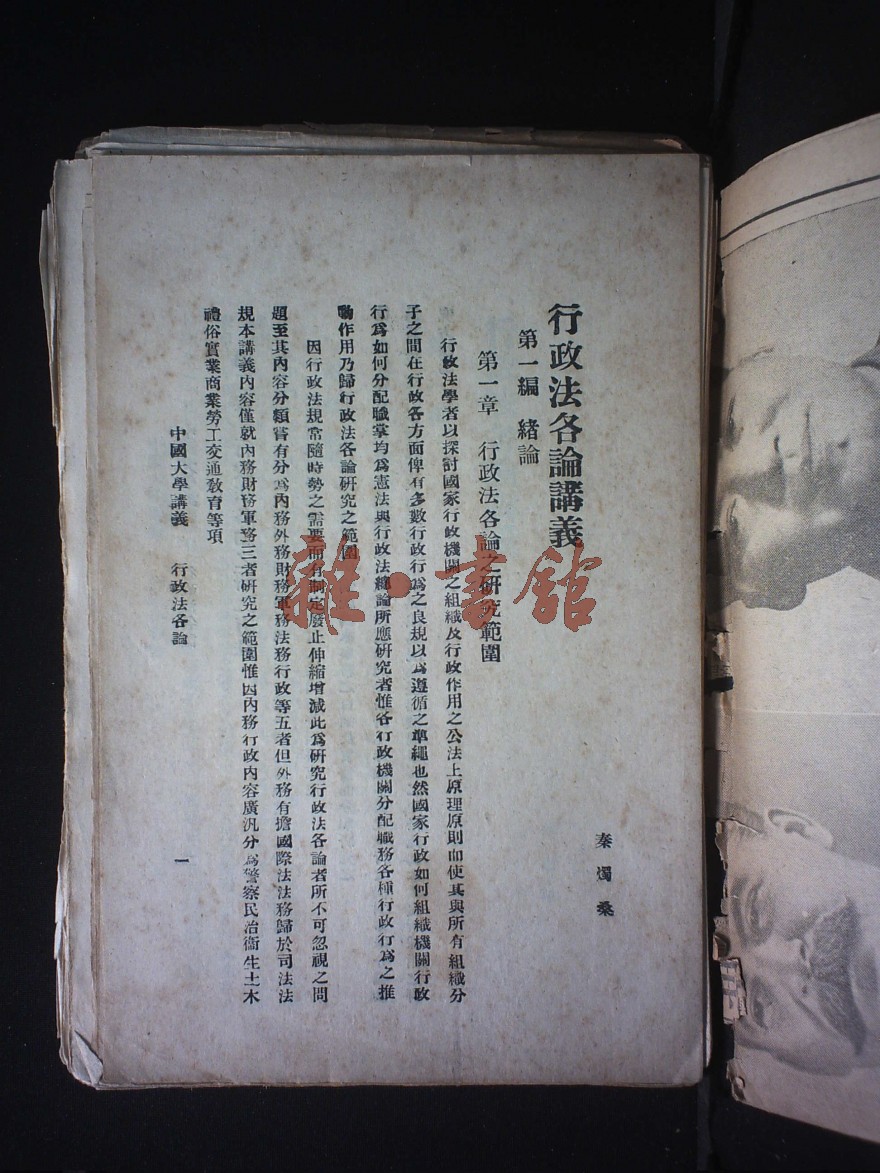 行政法各論講義
秦燭桑
第一編　緒論
第一章　行政法各論之研究範圍
行政法學者以探討國家行政機關之組織及行政作用之公法上原理原則而使其與所有組織分
子之間在行政各方面俾有多數行政行爲之良規以爲遵循之準繩也然國家行政如何組織機關行政
行爲如何分配職掌均爲憲法與行政法總論所應研究者惟各行政機關分配職務各種行政行爲之推
動作用乃歸行政法各論研究之範圍
因行政法規常隨時勢之需要而有制定廢止伸縮增減此爲研究行政法各論者所不可忽視之問
題至其內容分類嘗有分爲內務外務財務軍務法務行政等五者但外務有擔國際法法務歸於司法法
規本講義內容僅就內務財務軍務三者研究之範圍惟因內務行政內容廣汎分爲警察民治衞生土木
禮俗實業商業勞工交通敎育等項
中國大學講義　行政法各論
一
雜·書館